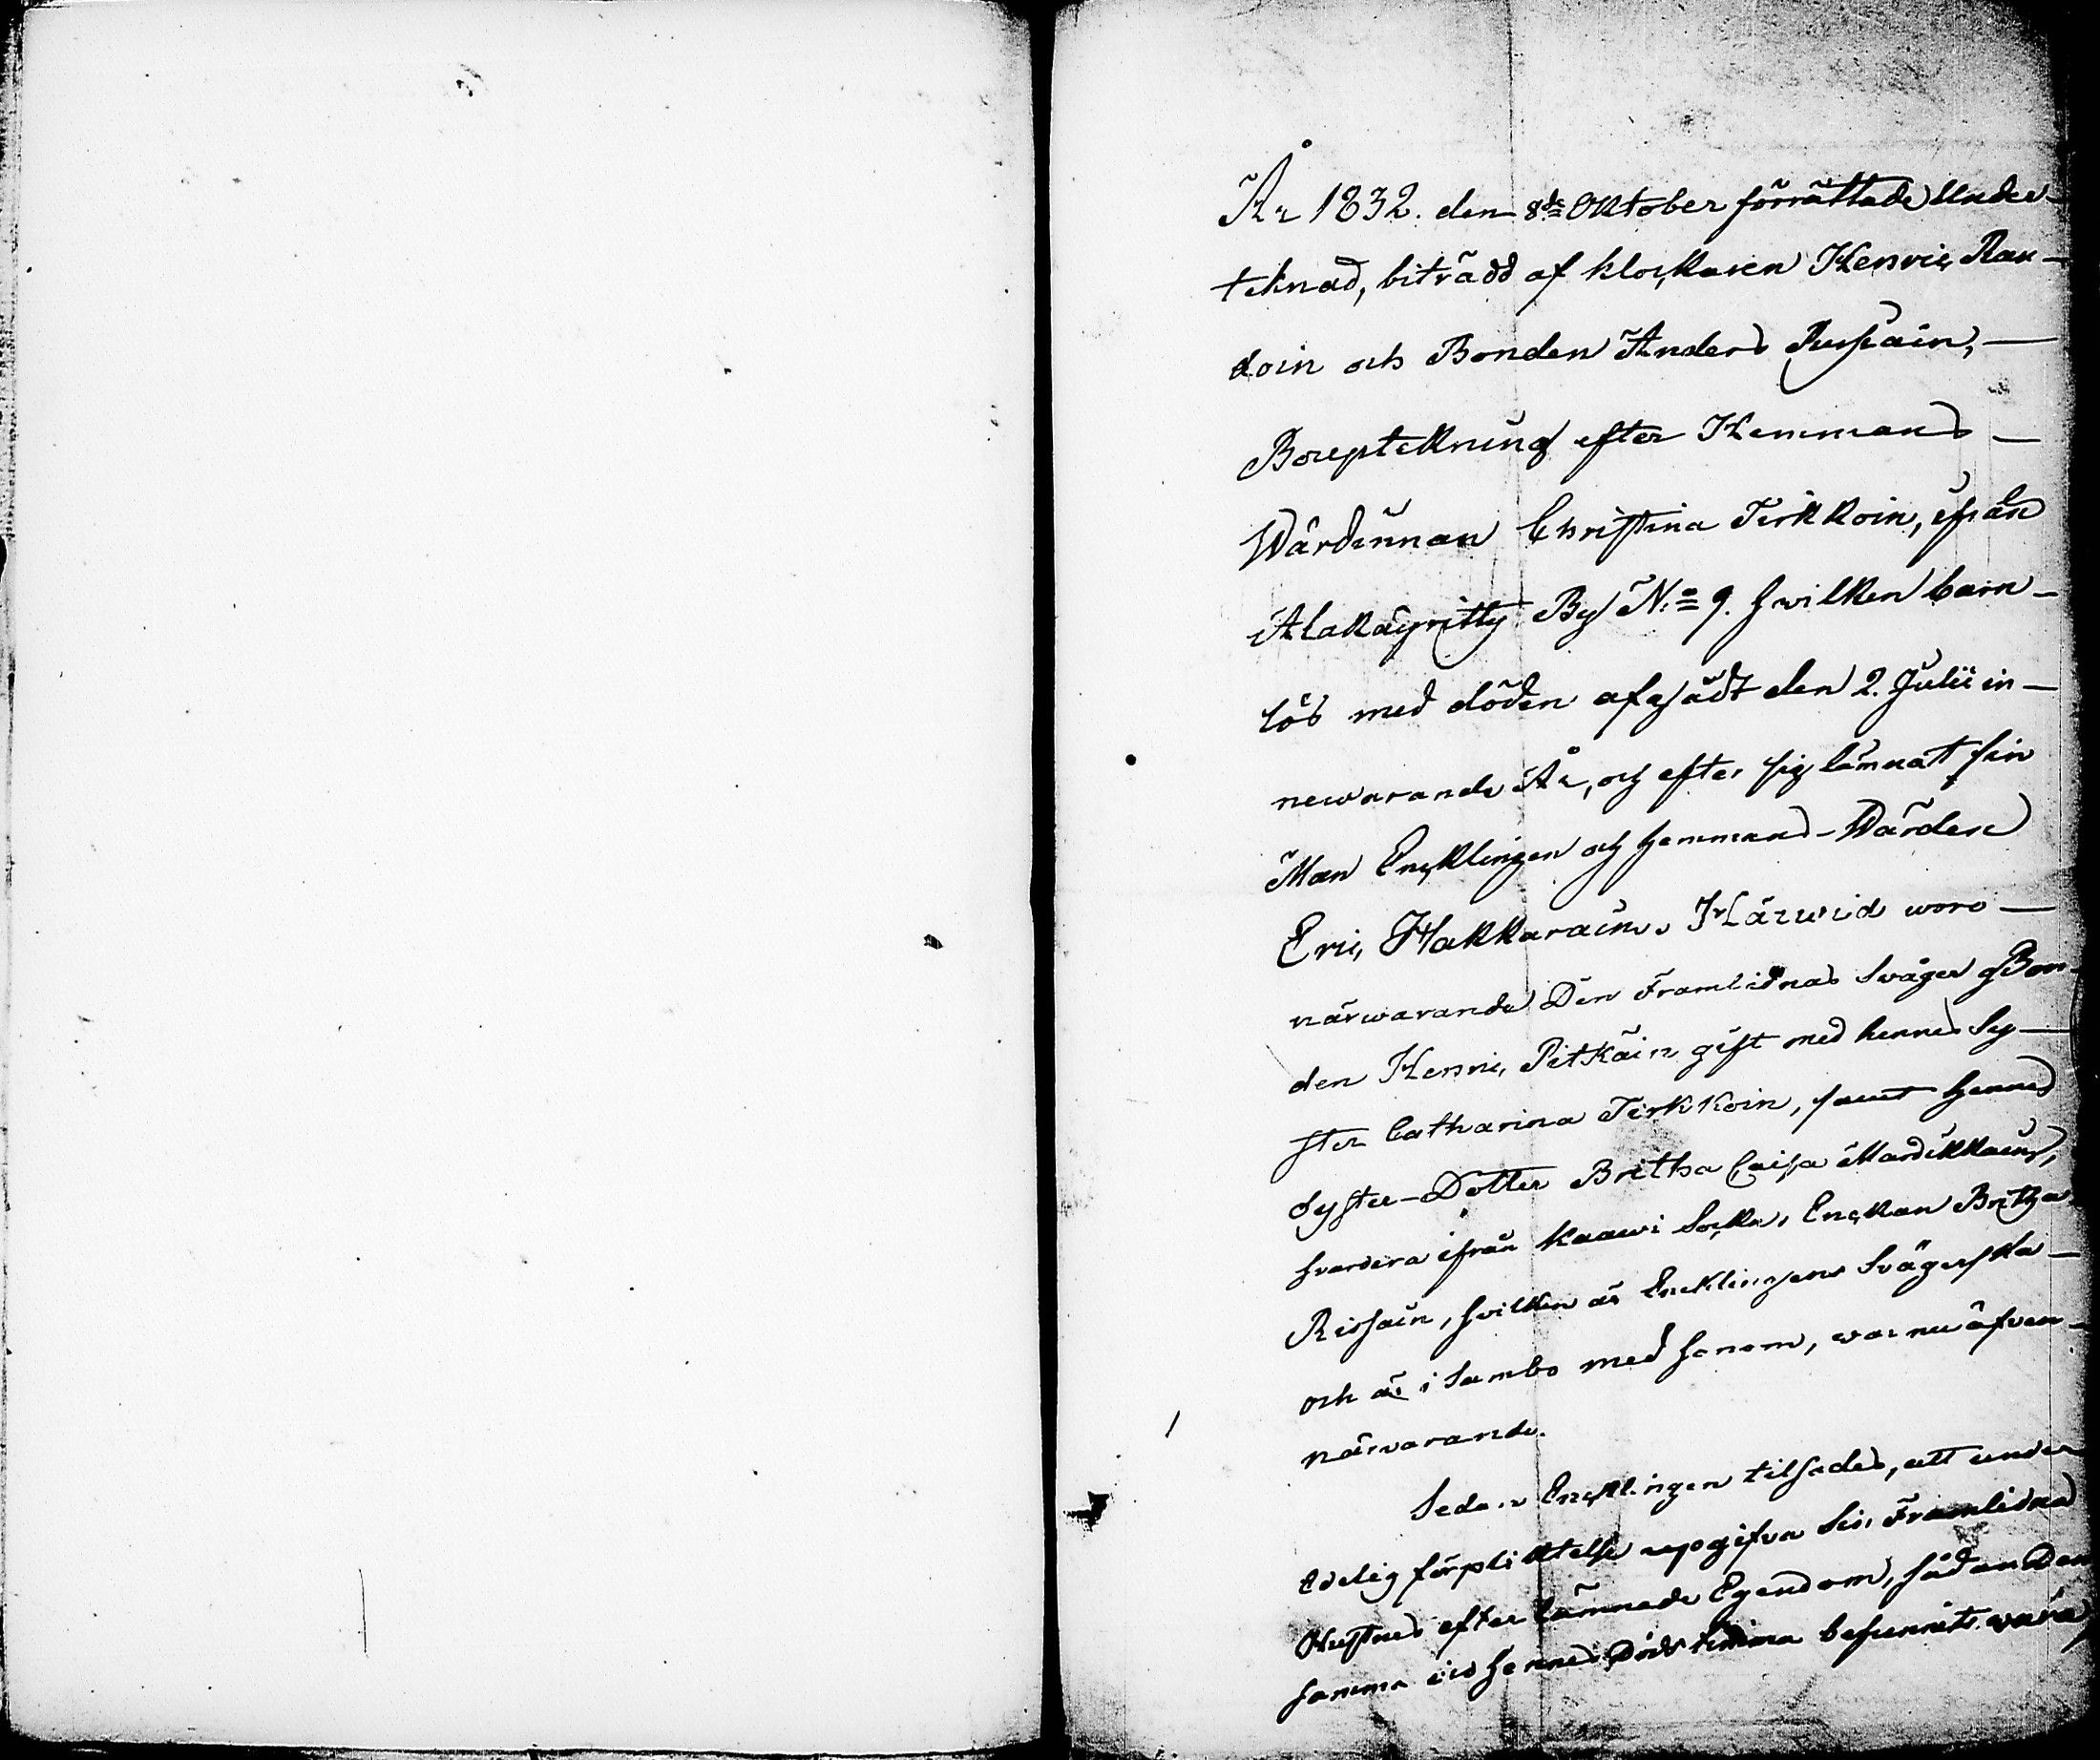 År 1832. den 8de Oktober förrättade Under-
teknad, biträdd af klockaren Henric Rau-
doin och Bonden Anders
Bouptekning efter Hemmans-
Wärdinnan Christina Tirkkoin, ifrån
Alakäyritty By N:o 9. hvilken barn-
lös med döden afgådt den 2. Julii in-
newarande År, och efter sig lämnatt sin
Man Encklingen och hemmans-Wärden
Eric Hakkarain. Härwid woro
närwarande Den Framlidnas Svåger Bon-
den Henric Pitkäin gift med hennes Sy-
ster Catharina Tirkkoin, samt hennes
Syster-Dotter Britha Caisa Mardikkain,
hvardera ifrån Kaawi Sockn, Enckan Britha
Rissain, hvilken är Encklingens Svägerska
och är i Sambo med honom, war nu äfven
närvarande.
Sedan Encklingen tilsades, att under
Edelig förpliktelse uppgifva Sin Framlidna
Hustrus efter lämnade Egendom, sådan Den
samma vid hennes Dödstimma befunnits vara,